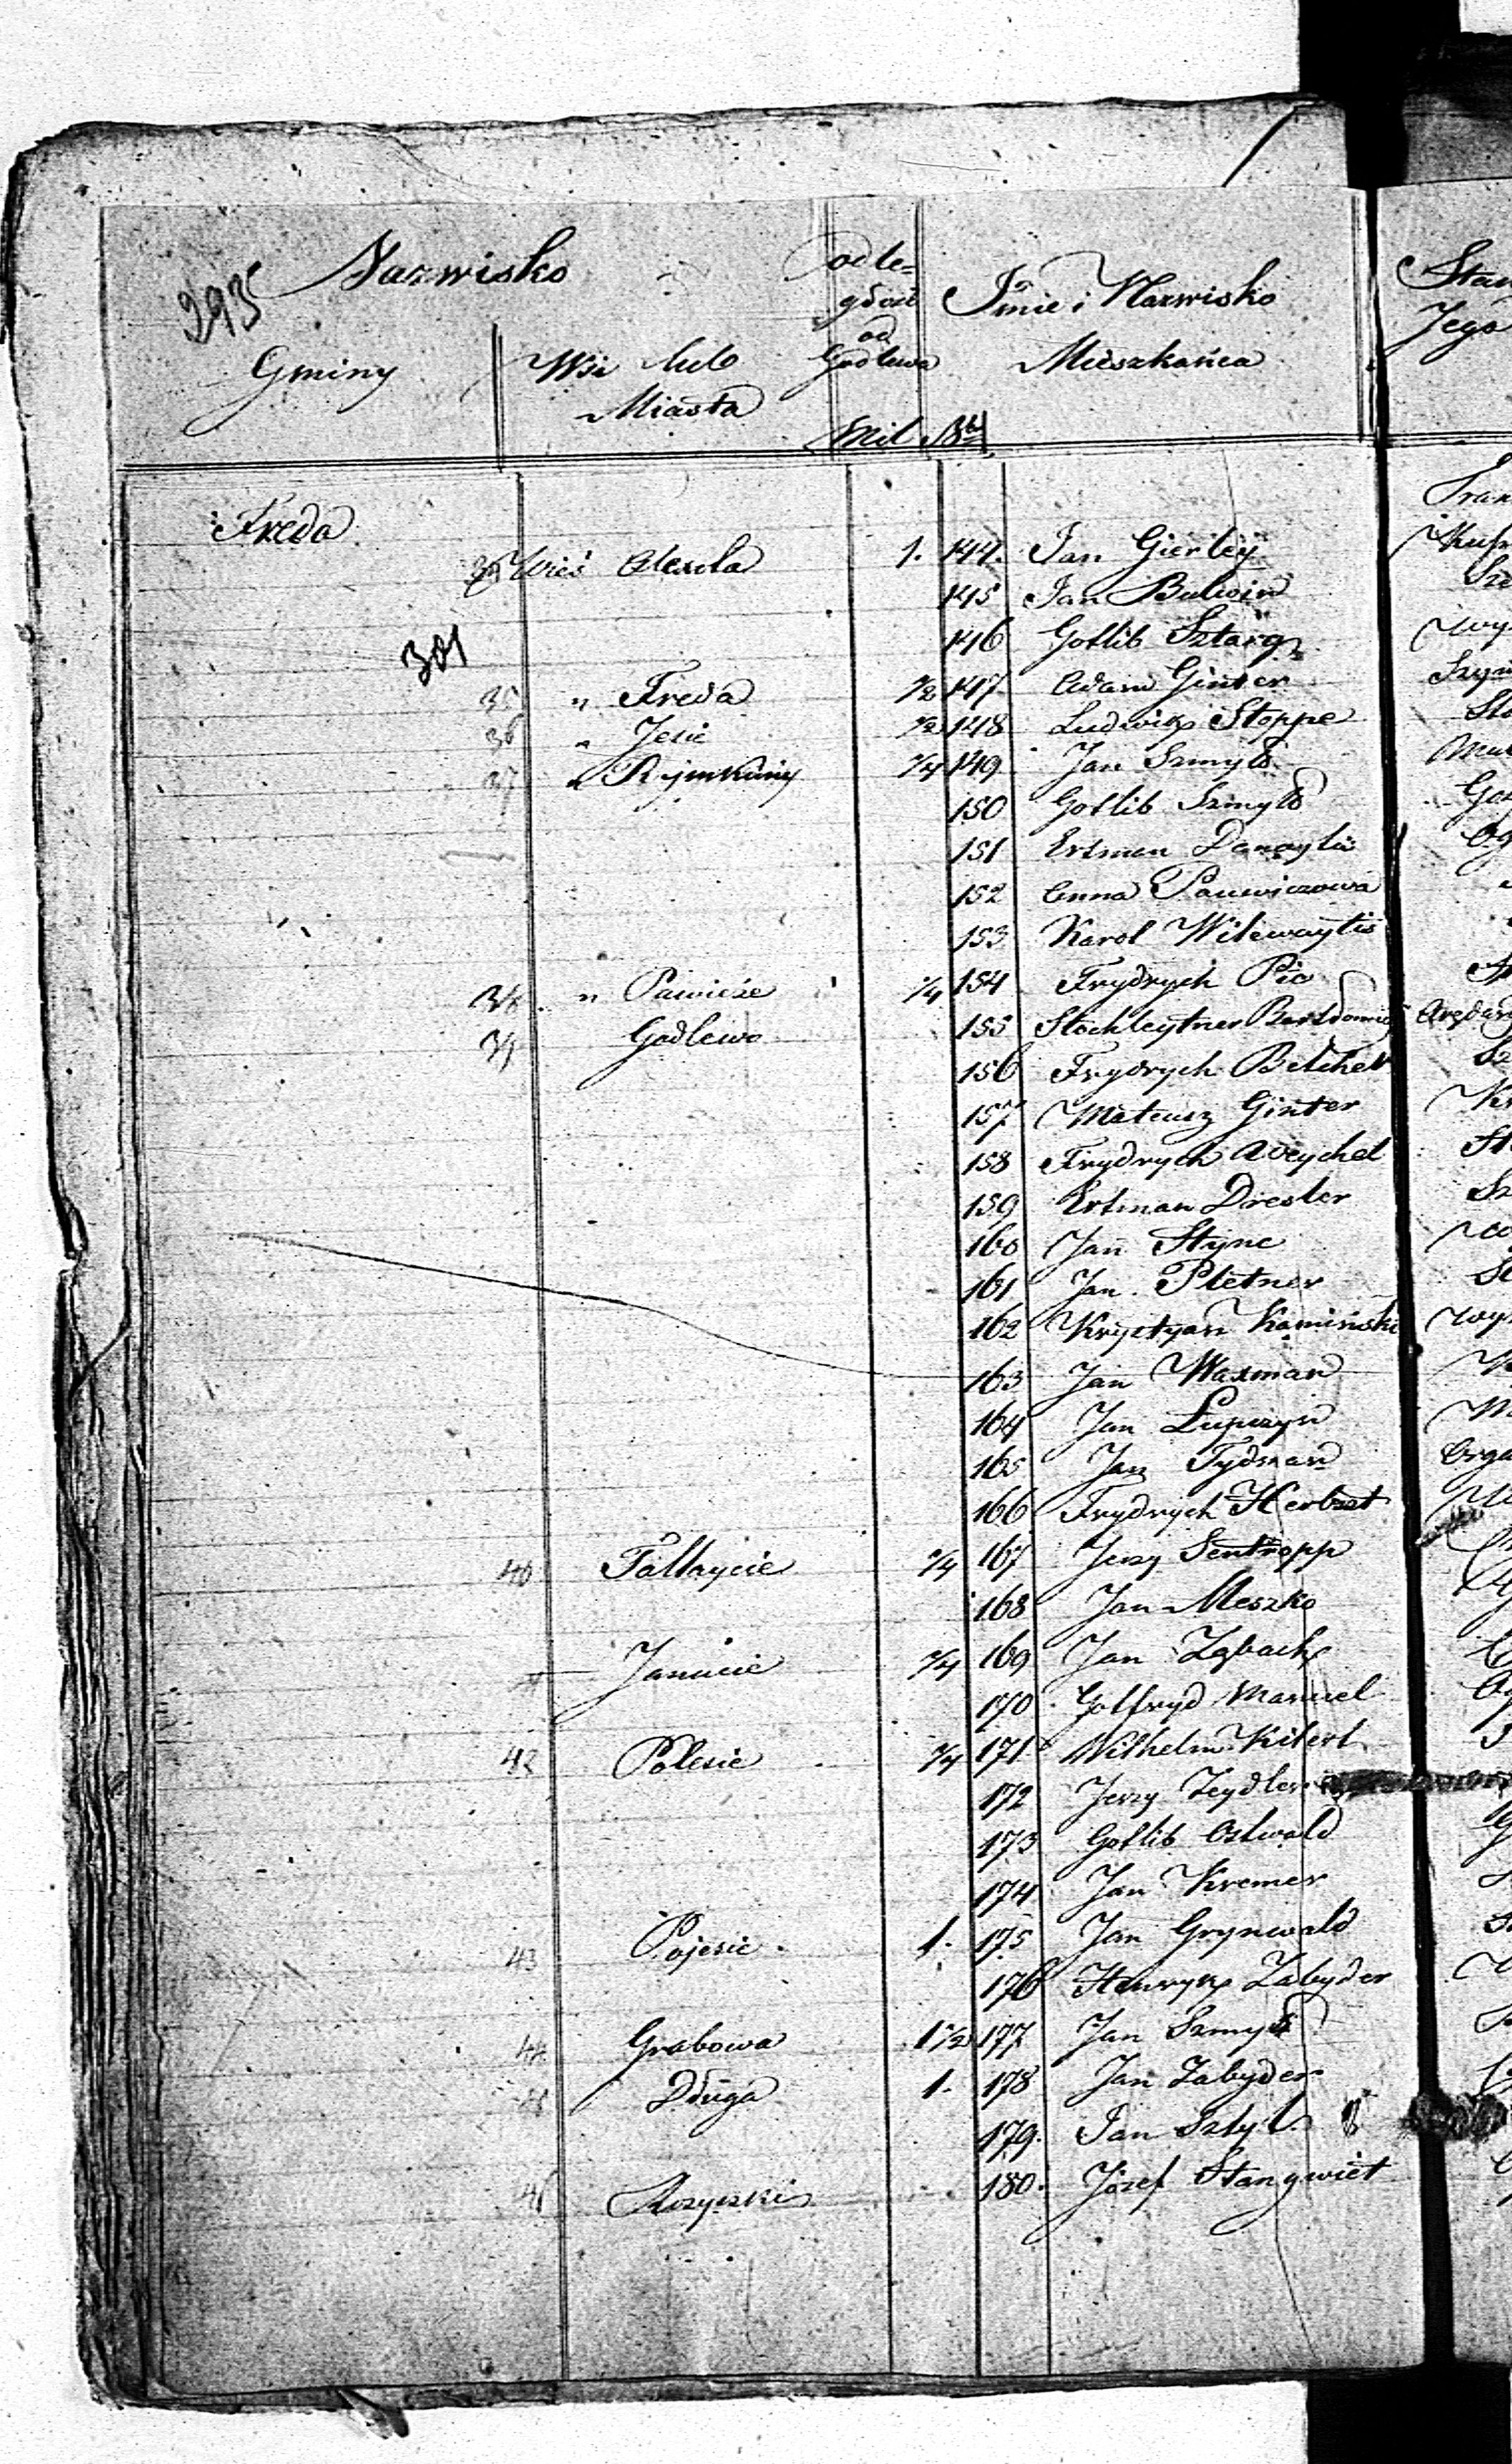 Nazwisko
293
Gminy
Wsi lub
Miasta
odle=
głość
od
Godlewa
Mil
Imie i Nazwisko
Mieszkańca
Jego
Freda
Wieś Alexota 1. 144. Jan Gierley
145 Jan Bulwin
146 Gotlib Sztarg
301
35 " Freda 1/2 147 Adam Ginter
36 " Jesie 1/2 148 Ludwik Stoppe
37 " Rymkuny 1/4 149 Jan Szmyt
150 Gotlib Szmyt
151 Ertman
152 Anna Pauwiczowa
153 Karol Wilewaytis
38 " Pawieże 1/4 154 Frydrych Pic
39 Godlewo 155 Stochleytner Bartłomiej
156 Frydrych Betcher
157 Mateusz Ginter
158 Frydrych Aweychel
159 Ertman Dresler
160 Jan Styne
161 Jan Pletner
162 Krystyan Kamiński
163 Jan Waxman
164 Jan Lupczyn
165 Jan Tydman
166 Frydrych Herbszt
40 Fałtrycie 1/4 167 Jerzy Sentropp
168 Jan Meszko
Janucie 1/4 169 Jan Zgbach
170 Gotfryd Manuel
42 Polesie 1/4 171 Wilhelm Kitert
172 Jerzy Zeydler
173 Gotlib Ostwald
174 Jan Kremer
43 Pojesie 1. 175 Jan Grynwald
176 Henryk Zabyder
44 Grabowa 1 1/2 177 Jan Szmyt
Długa 1. 178 Jan Zabyder
179. Jan Sztyl
180. Józef Stangwiet